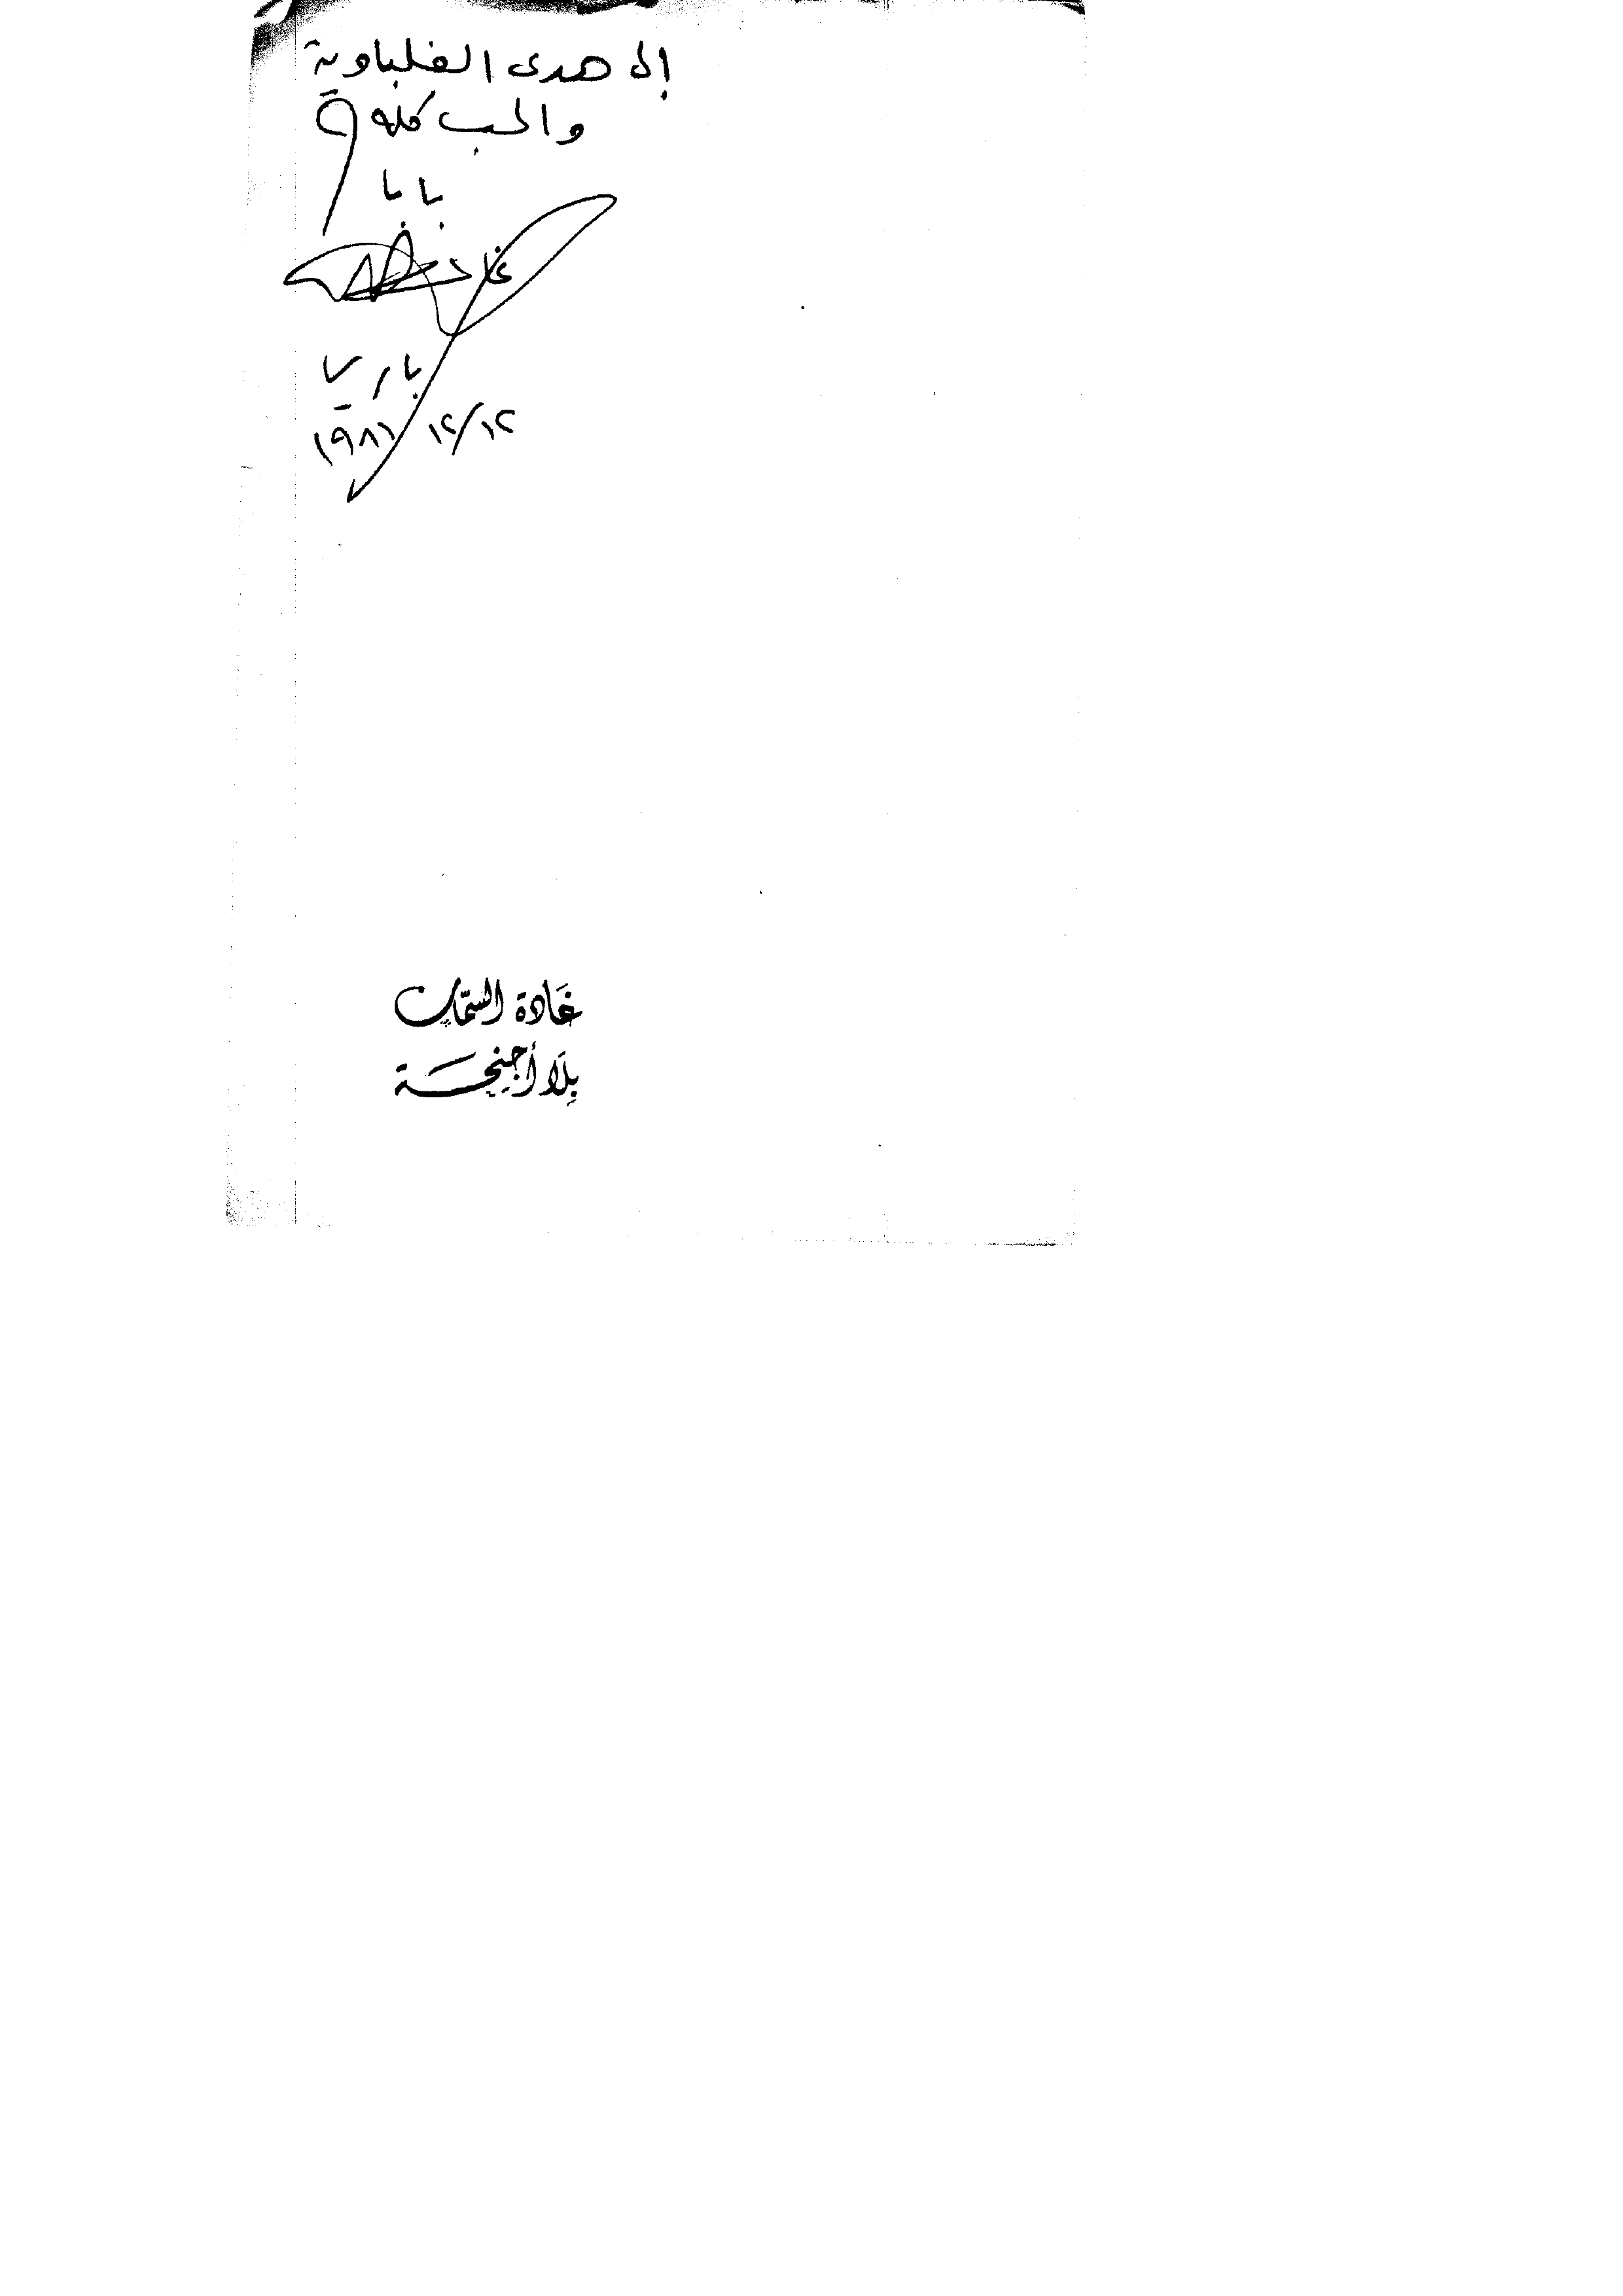 إلى هدى الغلباوية
والحب كله
بابا
باريس
١٩٨١/١٢/١٢
غَادة السمَّان
بِلَا أجنِحَة